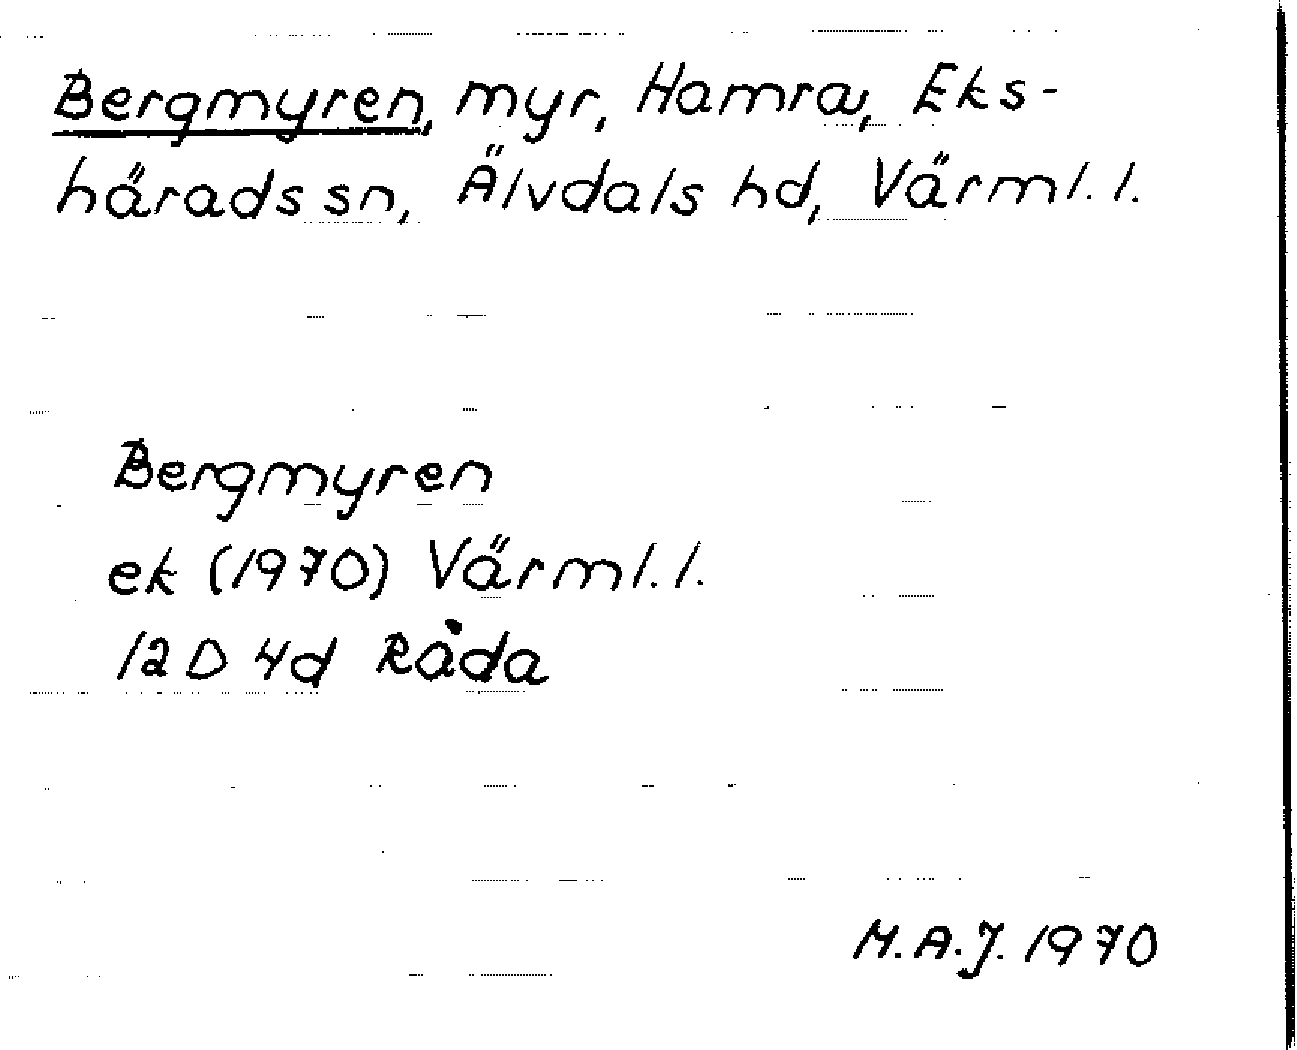 Bergmyren, myr, Hamra, Eks-
härads sn, Älvdals hd, Värml. l.
Bergmyren
ek (1970) Värml. l.
12 D 4d Råda
M.A.J. 1970